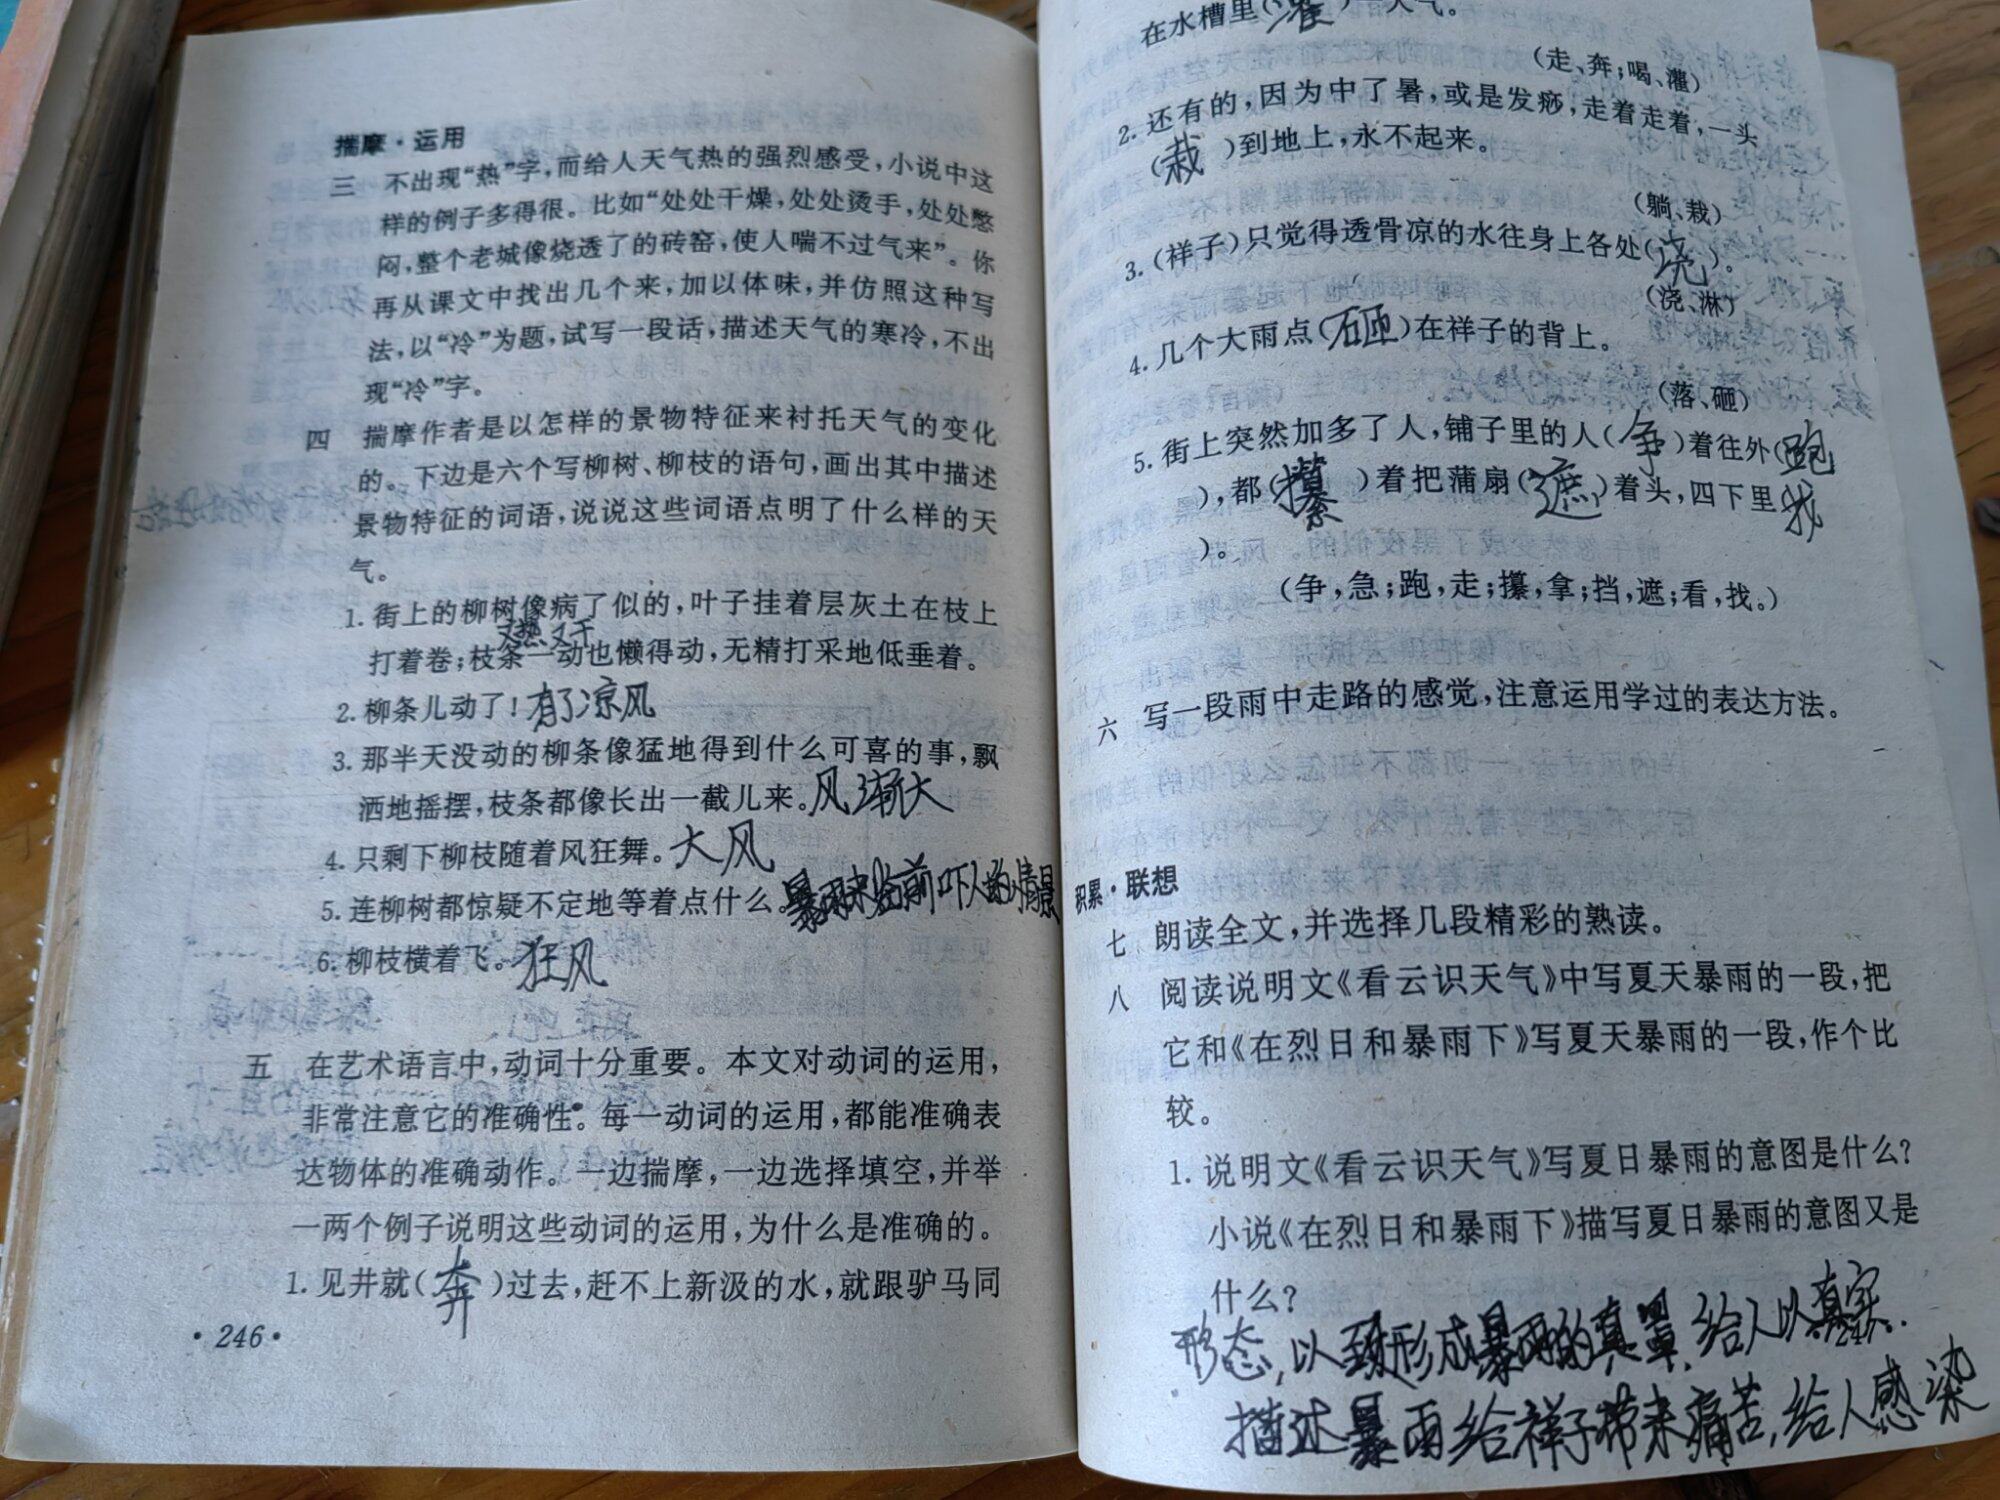 揣摩·运用
三 不出现“热”字,而给人天气热的强烈感受,小说中这
样的例子多得很。比如“处处干燥,处处烫手,处处憋
闷,整个老城像烧透了的砖窑,使人喘不过气来”。你
再从课文中找出几个来,加以体味,并仿照这种写
法,以“冷”为题,试写一段话,描述天气的寒冷,不出
现“冷”字。
四 揣摩作者是以怎样的景物特征来衬托天气的变化
的。下边是六个写柳树、柳枝的语句,画出其中描述
景物特征的词语,说说这些词语点明了什么样的天
气。
1. 街上的柳树像病了似的,叶子挂着层灰土在枝上
又热又干
打着卷;枝条一动也懒得动,无精打采地低垂着。
2. 柳条儿动了! 有了凉风
3. 那半天没动的柳条像猛地得到什么可喜的事,飘
洒地摇摆,枝条都像长出一截儿来。风渐大
4. 只剩下柳枝随着风狂舞。大风
5. 连柳树都惊疑不定地等着点什么。暴雨来临前吓人的情景
6. 柳枝横着飞。狂风
五 在艺术语言中,动词十分重要。本文对动词的运用,
非常注意它的准确性。每一动词的运用,都能准确表
达物体的准确动作。一边揣摩,一边选择填空,并举
一两个例子说明这些动词的运用,为什么是准确的。
1. 见井就(奔)过去,赶不上新汲的水,就跟驴马同
·246·
在水槽里(灌)一大气。
(走、奔;喝、灌)
2. 还有的,因为中了暑,或是发痧,走着走着,一头
(栽)到地上,永不起来。
(躺、栽)
3. (祥子)只觉得透骨凉的水往身上各处(浇)。
(浇、淋)
4. 几个大雨点(砸)在祥子的背上。
(落、砸)
5. 街上突然加多了人,铺子里的人(争)着往外(跑
),都(攥)着把蒲扇(遮)着头,四下里(找
)。
(争,急;跑,走;攥,拿;挡,遮;看,找。)
六 写一段雨中走路的感觉,注意运用学过的表达方法。
积累·联想
七 朗读全文,并选择几段精彩的熟读。
八 阅读说明文《看云识天气》中写夏天暴雨的一段,把
它和《在烈日和暴雨下》写夏天暴雨的一段,作个比
较。
1. 说明文《看云识天气》写夏日暴雨的意图是什么?
小说《在烈日和暴雨下》描写夏日暴雨的意图又是
什么?
形态,以致形成暴雨的真,给人以真实.
描述暴雨给祥子带来痛苦,给人感染